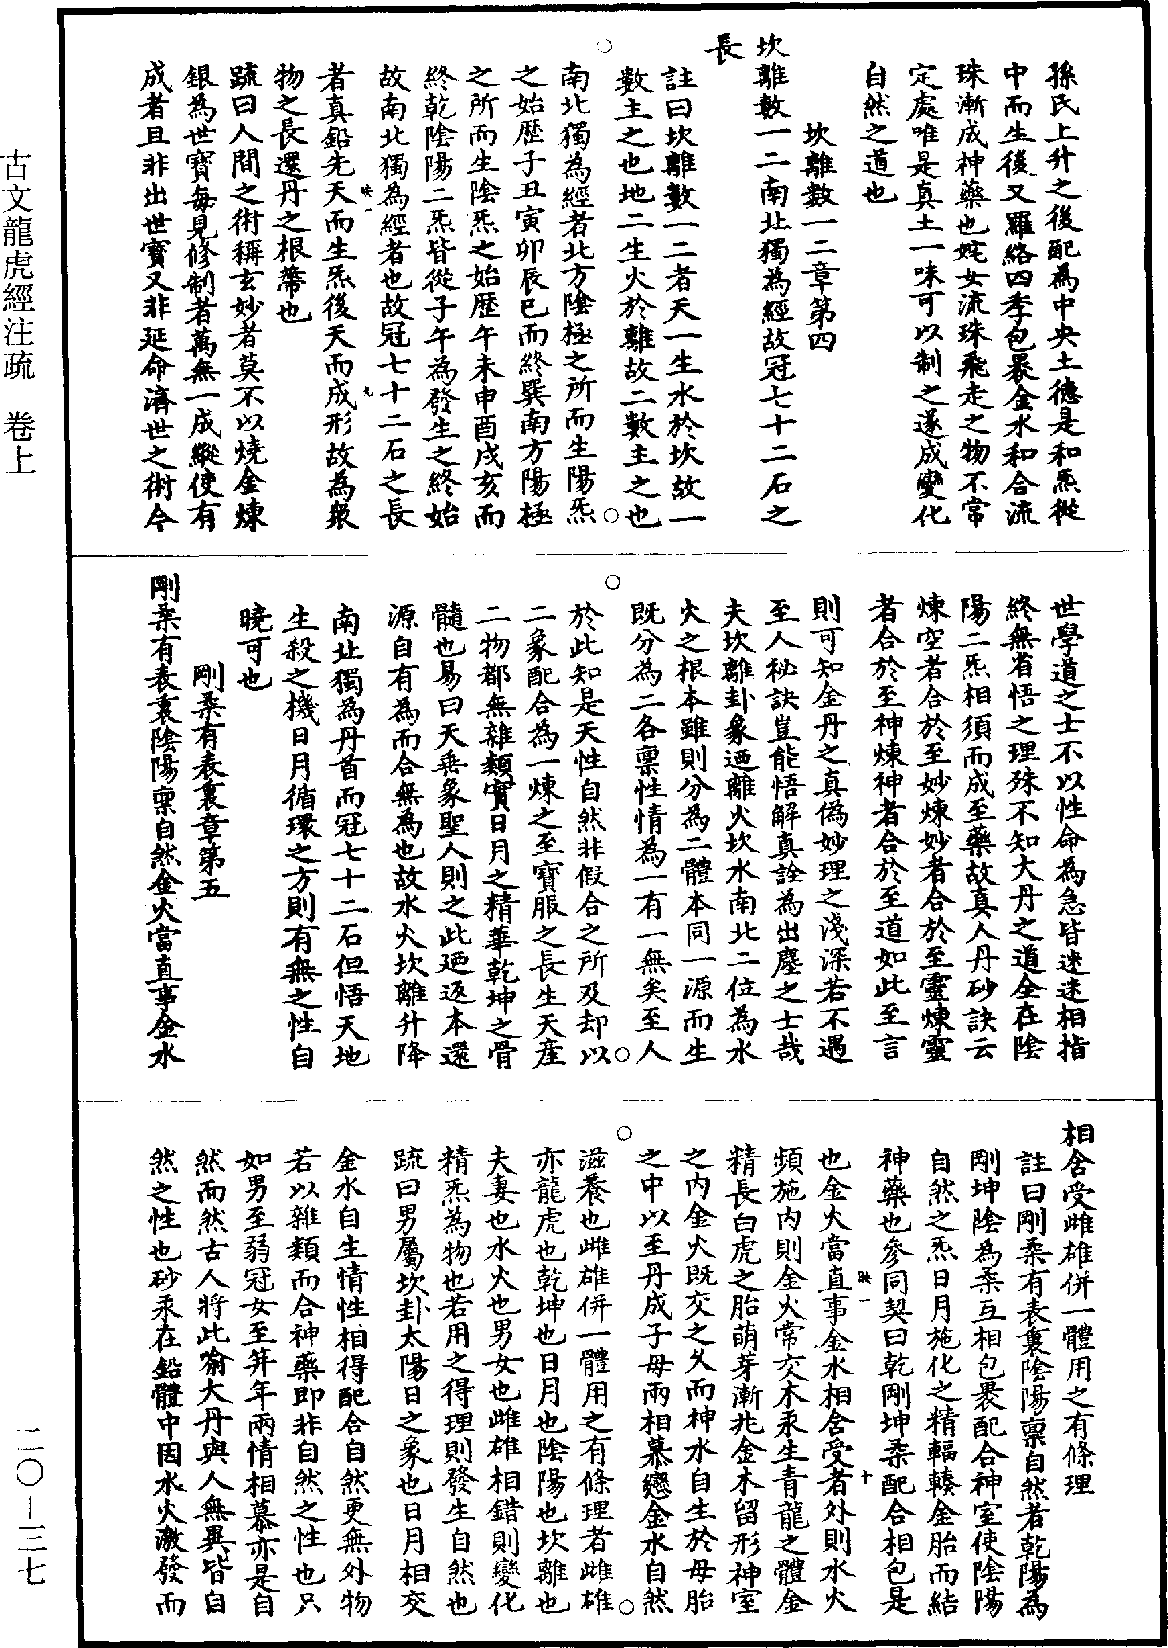 孫民上升之後配為中央土德是和炁從
中而生後又羅絡四季包裹金水和合流
珠漸成神藥也姹女流珠飛走之物不常
定處唯是真土一味可以制之遂成變化
自然之道也
坎離數一二章第四
坎離數一二南北獨為經故冠七十二石之
長
註曰坎離數一二者天一生水於坎故一
數主之也地二生火於離故二數主之也
南北獨為經者北方陰極之所而生陽炁
之始歷子丑寅卯辰巳而終巽南方陽極
之所而生陰炁之始歷午未申酉戌亥而
終乾陰陽二炁皆從子午為發生之終始
故南北獨為經者也故冠七十二石之長
者真鉛先天而生炁後天而成形故為衆
物之長還丹之根蔕也
疏曰人間之術稱玄妙者莫不以燒金煉
銀為世寶每見修制者萬無一成縱使有
成者且非出世寶又非延命濟世之術今
世學道之士不以性命為急皆迷迷相指
終無省悟之理殊不知大丹之道全在陰
陽二炁相須而成至藥故真人丹砂訣云
煉空者合於至妙煉妙者合於至靈煉靈
者合於至神煉神者合於至道如此至言
則可知金丹之真偽妙理之淺深若不遇
至人秘訣豈能悟解真詮為出塵之士哉
夫坎離卦象迺離火坎水南北二位為水
火之根本雖則分為二體本同一源而生
既分為二各稟性情為一有一無矣至人
於此知是天性自然非假合之所及却以
二象配合為一煉之至寶服之長生天產
二物都無雜類實日月之精華乾坤之骨
髓也易曰天垂象聖人則之此迺返本還
源自有為而合無為也故水火坎離升降
南北獨為丹首而冠七十二石但悟天地
生殺之機日月循環之方則有無之性自
曉可也
剛柔有表裏章第五
剛柔有表裏陰陽稟自然金火當直事金水
相含受雌雄併一體用之有條理
註曰剛柔有表裏陰陽稟自然若乾陽為
剛坤陰為柔互相包裹配合神室使陰陽
自然之炁日月施化之精輻輳金胎而結
神藥也參同契曰乾剛坤柔配合相包是
也金火當直事金水相含受者外則水火
頻施內則金火常交木汞生青龍之體金
精長白虎之胎萌芽漸兆金木留形神室
之內金火既交之久而神水自生於母胎
之中以至丹成子母兩相慕戀金水自然
滋養也雌雄併一體用之有條理者雌雄
亦龍虎也乾坤也日月也陰陽也坎離也
夫妻也水火也男女也雌雄相錯則變化
精炁為物也若用之得理則發生自然也
疏曰男屬坎卦太陽日之象也日月相交
金水自生情性相得配合自然更無外物
若以雜類而合神藥即非自然之性也只
如男至弱冠女至笄年兩情相慕亦是自
然而然古人將此喻大丹與人無異皆自
然之性也砂汞在鉛體中因水火激發而
古文龍虎經注疏 卷上
二〇—三七